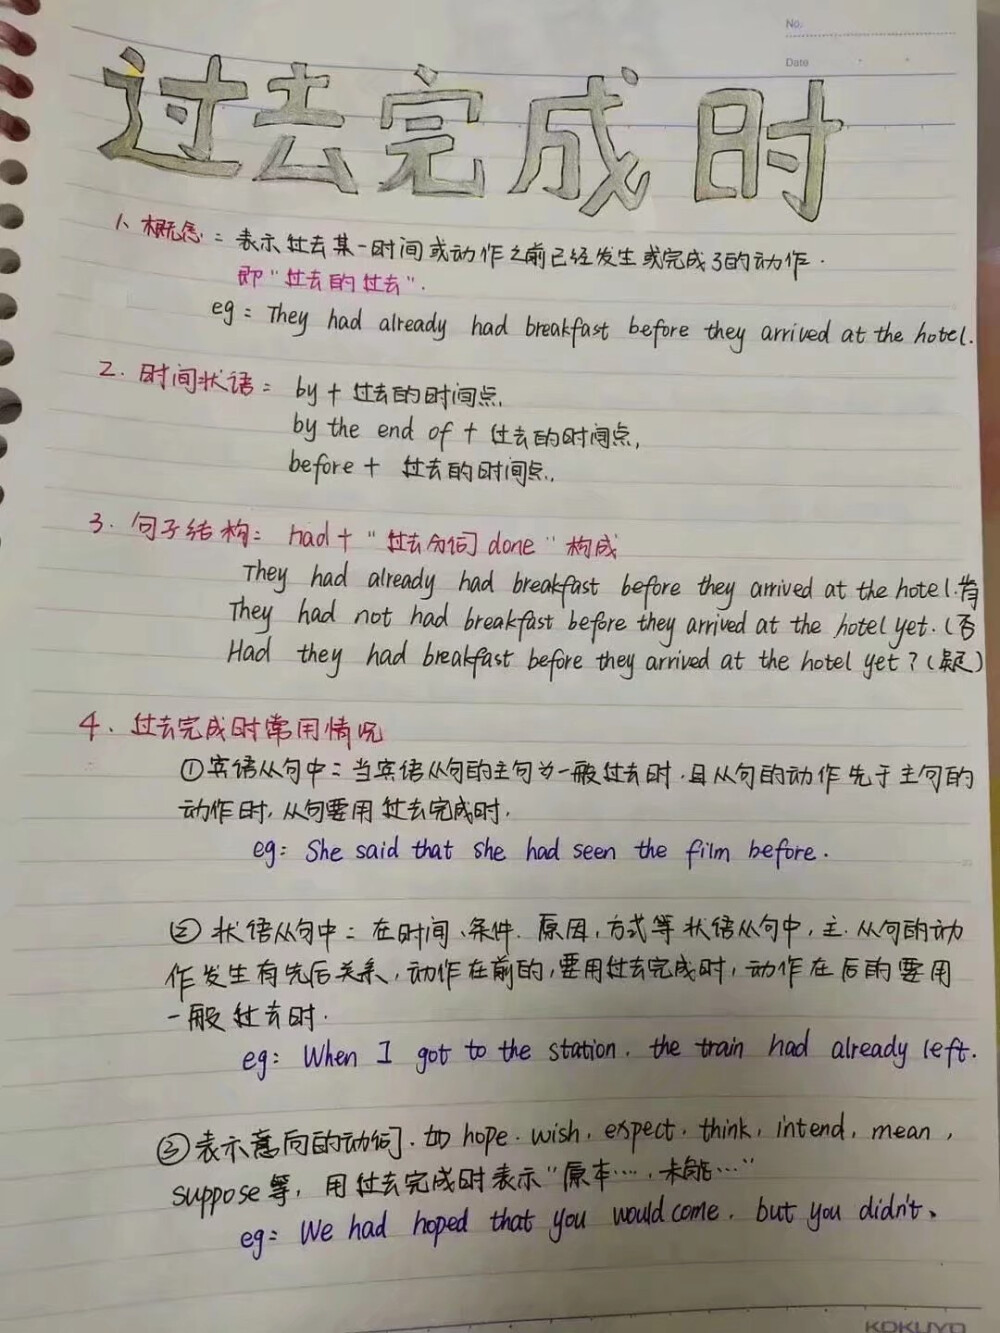 No.
Date
过去完成时
1、概念：表示过去某一时间或动作之前已经发生或完成了的动作.
即"过去的过去".
eg: They had already had breakfast before they arrived at the hotel.
2. 时间状语: by + 过去的时间点,
by the end of + 过去的时间点,
before + 过去的时间点.,
3. 句子结构: had + "过去分词 done" 构成
They had already had breakfast before they arrived at the hotel.肯
They had not had breakfast before they arrived at the hotel yet.(否
Had they had breakfast before they arrived at the hotel yet?(疑)
4. 过去完成时常用情况
①宾语从句中：当宾语从句的主句为一般过去时.且从句的动作先于主句的
动作时,从句要用过去完成时.
eg: She said that she had seen the film before.
② 状语从句中：在时间、条件.原因,方式等状语从句中,主.从句的动
作发生有先后关系,动作在前的,要用过去完成时,动作在后的要用
一般过去时.
eg: When I got to the station. the train had already left.
③表示意向的动词.如 hope. wish. expect. think. intend. mean,
suppose等,用过去完成时表示"原本…,未能…"
eg: We had hoped that you would come. but you didn't.
KOKUYO